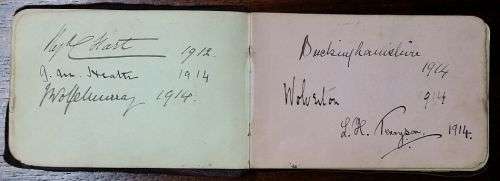 Hart 1912.
G. M. Heath 1914
J Wolfe Murray 1914.
Buckinghamshire
1914
Wolverton
1914
L. H. Tennyson. 1914.